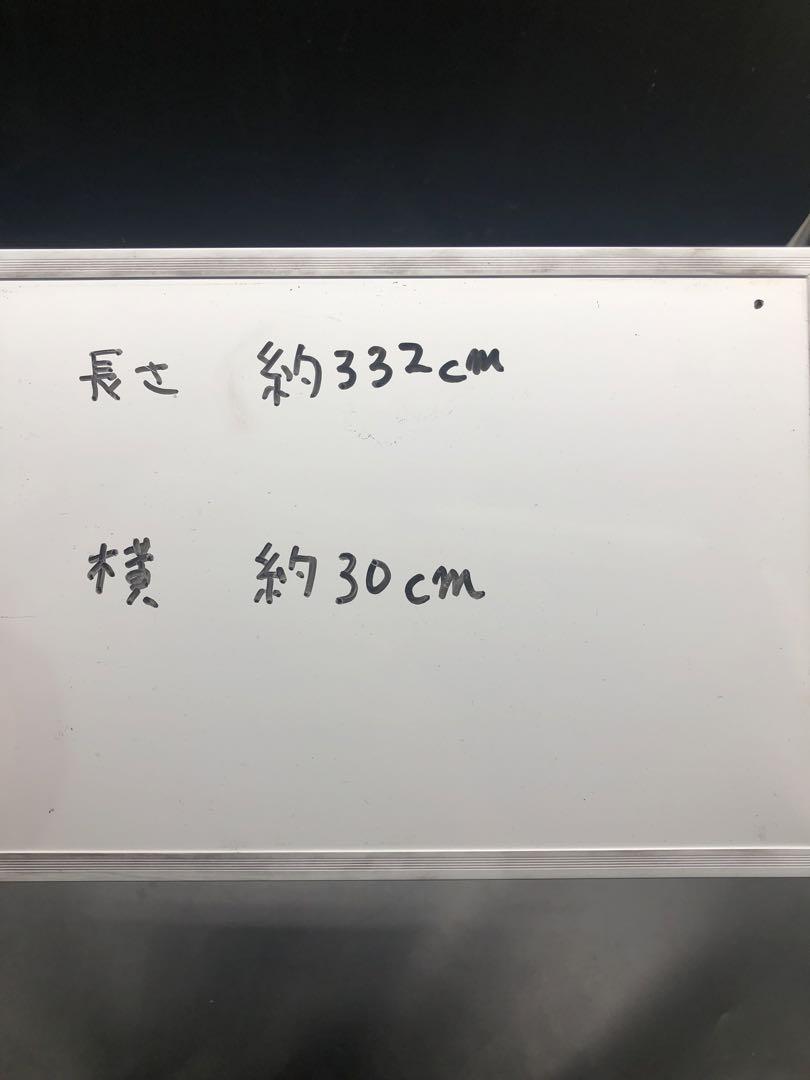 長さ 約332cm
横 約30cm